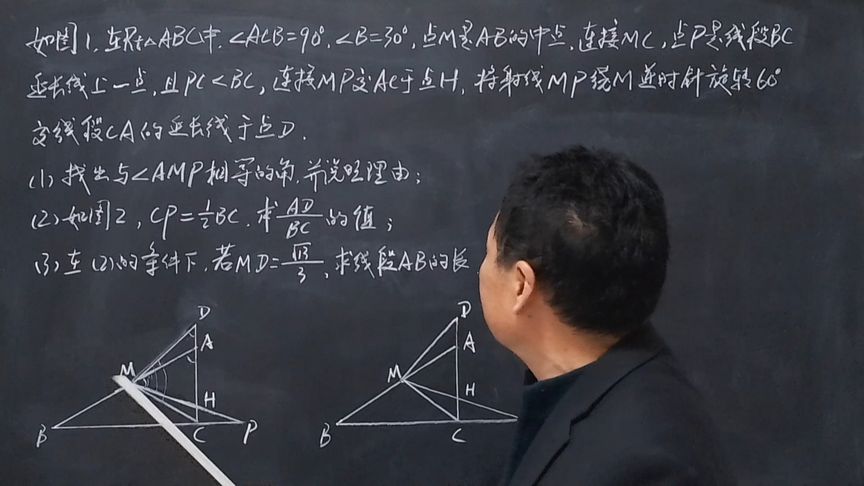 如图1,在Rt△ABC中,∠ACB=90°,∠B=30°,点M是AB的中点,连接MC,点P是线段BC
延长线上一点,且PC<BC,连接MP交AC于点H,将射线MP绕M逆时针旋转60°
交线段CA的延长线于点D.
(1)找出与∠AMP相等的角,并说明理由;
(2)如图2,CP=½BC,求AD/BC的值;
(3)在(2)的条件下,若MD=√13/3,求线段AB的长
D
A
M
H
B
C
P
D
A
M
H
B
C